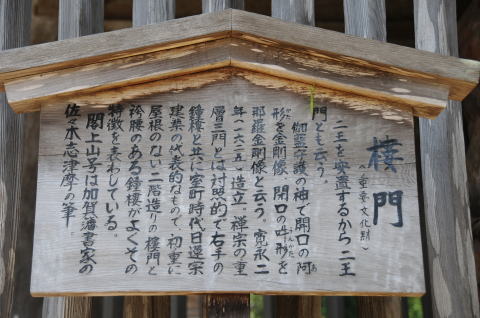 樓門
(重要文化財)
二王を安置するから二王
門とも云う。
伽藍守護の神で開口の阿
形を金剛像、開口の吽形を
那羅金剛像と云う。寛永二
年(一六二五)造立。禅宗の重
層三門とは対照的で右手の
鐘樓と共に室町時代日蓮宗
建築の代表的なもので、初重に
屋根のない二階造りの樓門と
袴腰のある鐘樓がよくその
特徴を表わしている。
閣上山号は加賀藩書家の
佐々木志津摩の筆